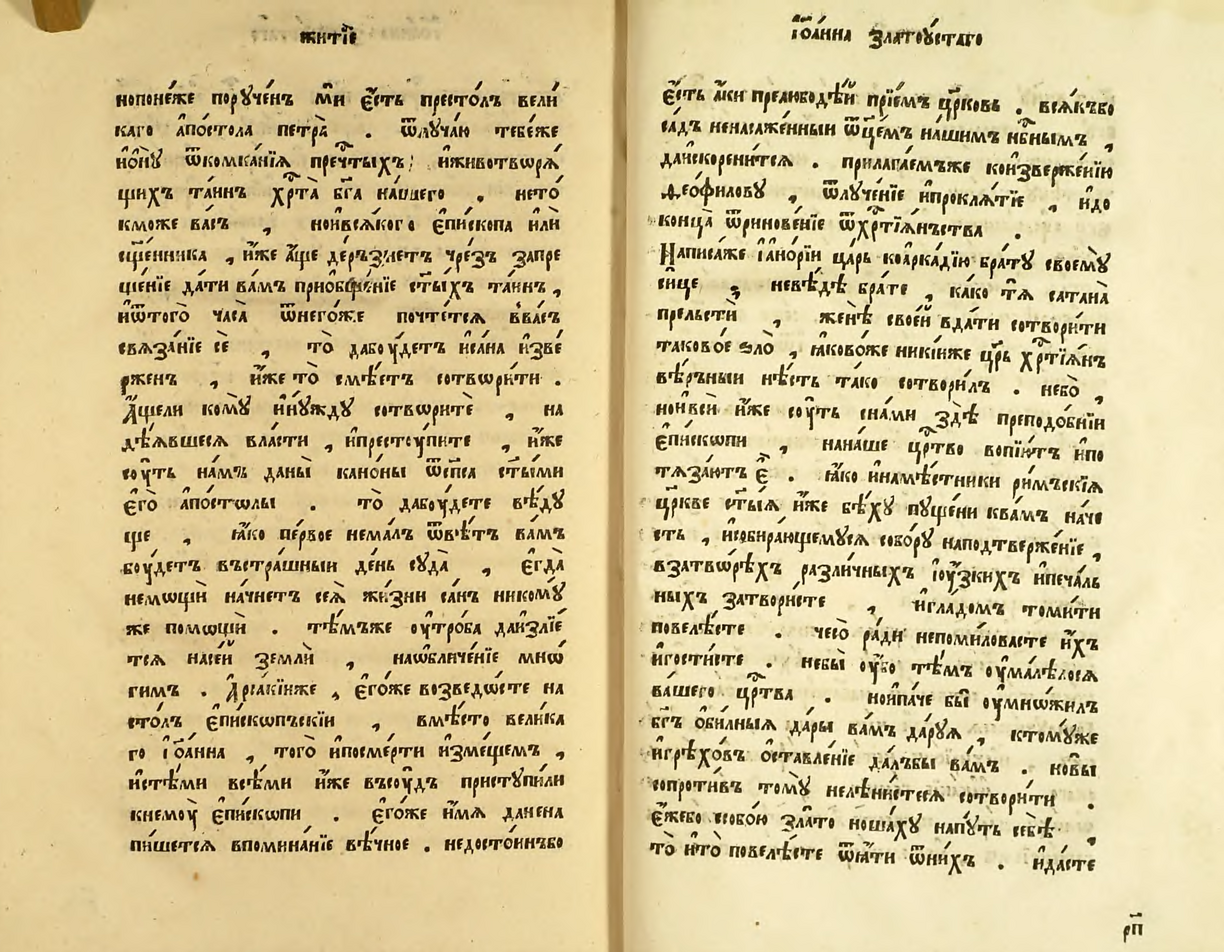 житїе
нопоне́же порꙋ́ченъ ми́ є҆́сть престо́лъ вели
каго а҆по́стола петра̀ . ѿлꙋча́ю тебе́же
и҆о҆нꙋ̀ ѿкомка́нїѧ пречⷭ҇тыхъ , и҆животворѧ́
щихъ та́инъ хрⷭ҇та̀ бг҃а на́шего , нето́
кможе ва́съ , нои҆всѧ́кого є҆пи́скопа и҆лѝ
сщ҃е́нника , и҆́же а҆́ще де́рьзнетъ чре́зъ запре
ще́нїе да́ти ва́мъ приѡбще́нїе ст҃ы́хъ та́инъ ,
и҆ѿтого̀ часа ѿнего́же почте́тсѧ в҆ва́съ
свѧза́нїе се , то̀ дабꙋ́детъ и҆са́на и҆зве́
рженъ , и҆́же то̀ смѣ́етъ сотвори́ти .
А҆́щели комꙋ̀ и҆нꙋ́ждꙋ сотвори́те , на
дѣ́ѧвшесѧ вла́сти , и҆престꙋ́пите , и҆́же
сꙋ́ть на́мъ даны̀ кано́ны ѿсп҃са ст҃ы́ми
є҆го̀ а҆по́столы . то̀ дабꙋ́дете вѣ́дꙋ
ще , ꙗ҆́ко пе́рвое нема́лъ ѿвѣ́тъ ва́мъ
бꙋ́детъ въстра́шныи де́нь сꙋда̀ , є҆гда̀
немощи́и начнетъ сеѧ̀ жи́зни са́нъ никомꙋ́
же помощѝ . тѣ́мъже ᲂу҆тро́ба даи҆злїе́
тсѧ насе́й землѝ , наѡ҆бличе́нїе мно́
гимъ . А҆рсаки́иже , є҆го́же возведо́сте на
сто́лъ є҆пи́скопьскїи , вмѣ́сто вели́ка
го і҆ѡа́нна , того̀ и҆посме́рти и҆зме́щемъ ,
и҆стѣ́ми всѣ́ми и҆́же въсꙋ́дъ пристꙋпи́ли
кнемꙋ̀ є҆пи́скопи . є҆го́же и҆́мѧ данена
пи́шетсѧ впомина́нїе вѣ́чное . недосто́инъбо
і҆ѡа́нна златоꙋ́стаго
є҆́сть а҆́ки прелюбодѣ́й прїе́мъ цр҃ковь . всѧ́къбо
са́дъ ненасажде́нныи ѻ҆ц҃е́мъ на́шимъ нбⷭ҇нымъ ,
даи҆скорени́тсѧ . прилага́емъже кои҆зверже́нїю
ѳео́филовꙋ , ѿлꙋче́нїе и҆проклѧ́тїе , и҆до
конца̀ ѿринове́нїе ѿхрⷭ҇тїѧ́нъства .
Написа́же і҆ано́рїи ца́рь коарка́дїю бра́тꙋ своемꙋ̀
сице , невѣ́дѣ бра́те , ка́ко тѧ̀ сатана̀
прельстѝ , женѣ̀ свое́й вда́ти сотвори́ти
таково́е ѕло̀ , ꙗ҆ково́же ники́иже цр҃ь хрⷭ҇тїѧ́нъ
вѣ́рьныи нѣ́сть та́ко сотвори́лъ . небо̀ ,
нои҆всѝ и҆́же сꙋ́ть сна́ми здѣ̀ преподо́бнїи
є҆пи́скопи , нана́ше црⷭ҇тво вопїю́тъ и҆по
тѧза́ютъ є҆̀ . ꙗ҆́ко и҆намѣ́стники ри́мъскїѧ
цр҃кве ст҃ы́ѧ и҆́же бѣ́хꙋ пꙋ́щени ква́мъ наче
сть , и҆собира́ющемꙋсѧ собо́рꙋ наподтверже́нїе ,
взатво́рѣхъ разли́чныхъ ю҆́зкихъ и҆печа́ль
ныхъ затвори́сте , и҆гла́домъ томи́ти
повелѣ́сте . чесо̀ ра́ди непоми́ловасте и҆́хъ
и҆гости́сте . небы̀ ᲂу҆́бо тѣ́мъ ᲂу҆мали́лосѧ
ва́шего црⷭ҇тва . нои҆па́че бы̀ ᲂу҆мно́жилъ
бг҃ъ ѻ҆би́лныѧ да́ры ва́мъ да́рꙋѧ , ктомꙋ́же
и҆грѣхо́въ ѡ҆ставле́нїе да́лъбы ва́мъ . новы̀
сопроти́въ томꙋ̀ нелѣни́стесѧ сотвори́ти .
є҆́жебо собо́ю зла́то ноша́хꙋ напꙋ́ть себѣ̀ ,
то̀ и҆то̀ повелѣ́сте ѿѧ́ти ѿни́хъ . и҆да́сте
рп҃